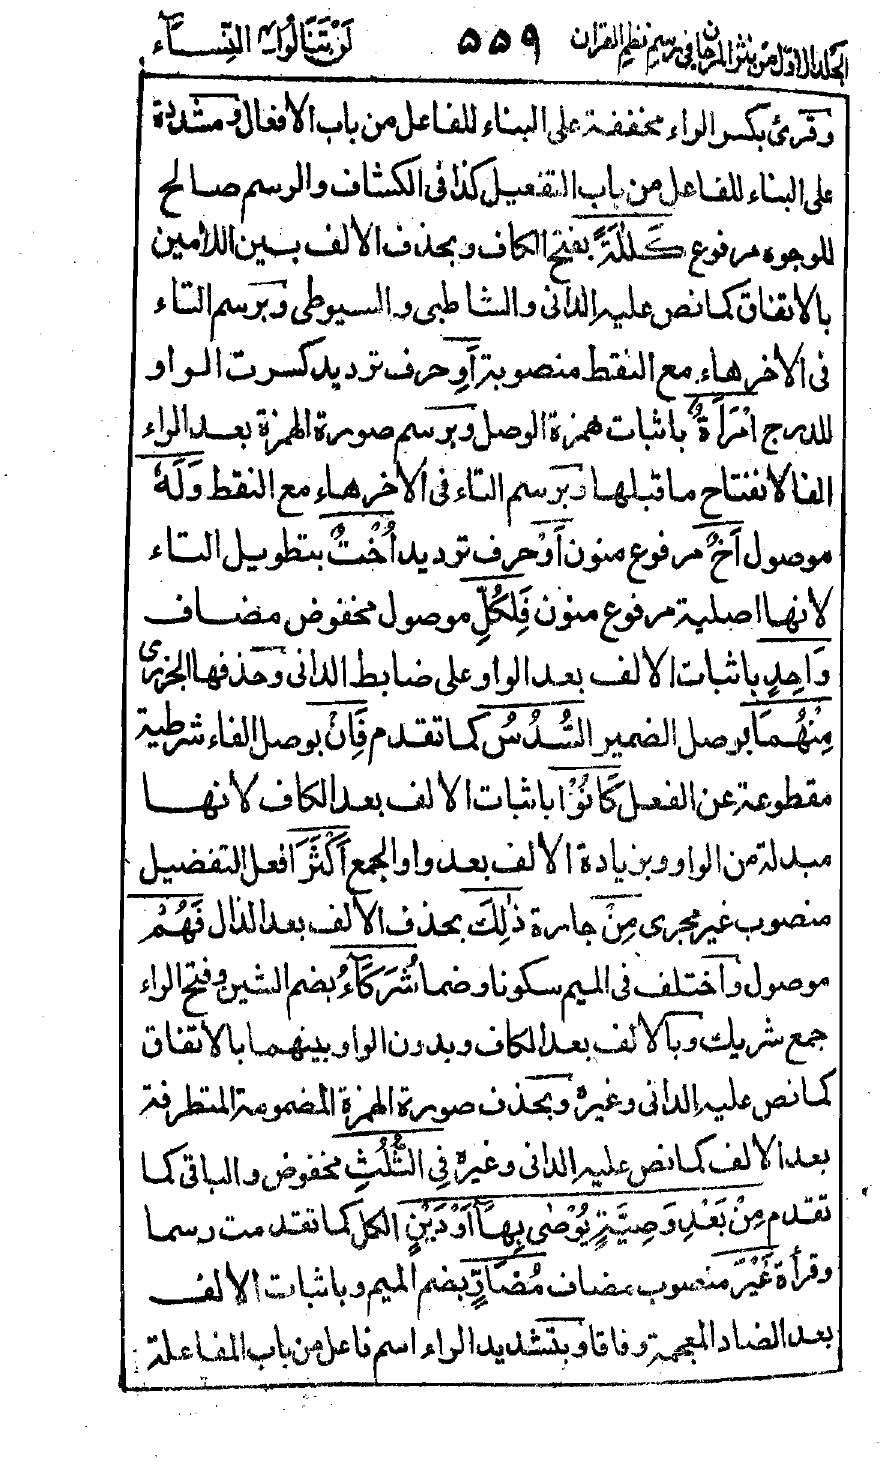 الجلد الاول من نثر المرجان فى رسم نظم القران ٥٥٩ لن تنالوا النسآء
وقرئ بكسر الراء مخففة على البناء للفاعل من باب الافعال ومشددة
على البناء للفاعل من باب التفعيل كذا فى الكشاف والرسم صالح
للوجوه مرفوع كَلٰلَةً بفتح الكاف وبحذف الالف بين اللامين
بالاتفاق كما نص عليه الدانى والشاطبى والسيوطى وبرسم التاء
فى الأخر هاء مع النقط منصوبة أَوِ حرف ترديد كسرت الواو
للدرج امْرَأَةٌ باثبات همزة الوصل وبرسم صورة الهمزة بعد الراء
الفا لانفتاح ما قبلها وبرسم التاء فى الأخر هاء مع النقط وَلَهٗ
موصول أَخٌ مرفوع منون أَوْ حرف ترديد أُخْتٌ بتطويل التاء
لانها اصلية مرفوع منون فَلِكُلِّ موصول مخفوض مضاف
وَاحِدٍ باثبات الالف بعد الواو على ضابط الدانى وحذفها الجزرى
مِنْهُمَا بوصل الضمير السُّدُسُ كما تقدم فَإِنْ بوصل الفاء شرطية
مقطوعة عن الفعل كَانُوْا باثبات الالف بعد الكاف لانها
مبدلة من الواو وبزيادة الالف بعد واو الجمع أَكْثَرَ افعل التفضيل
منصوب غير مجرى مِنْ جارة ذٰلِكَ بحذف الالف بعد الذال فَهُمْ
موصول واختلف فى الميم سكونا وضما شُرَكَآءُ بضم الشين وفتح الراء
جمع شريك وبالالف بعد الكاف وبدون الواو بينهما بالاتفاق
كما نص عليه الدانى وغيره وبحذف صورة الهمزة المضمومة المتطرفة
بعد الالف كما نص عليه الدانى وغيره فِى الثُّلُثِ مخفوض والباقى كما
تقدم مِنْ بَعْدِ وَصِيَّةٍ يُوْصٰى بِهَآ أَوْ دَيْنٍ الكل كما تقدمت رسما
وقرأة غَيْرَ منصوب مضاف مُضَآرٍّ بضم الميم وباثبات الالف
بعد الضاد المعجمة وفاقا وبتشديد الراء اسم فاعل من باب المفاعلة